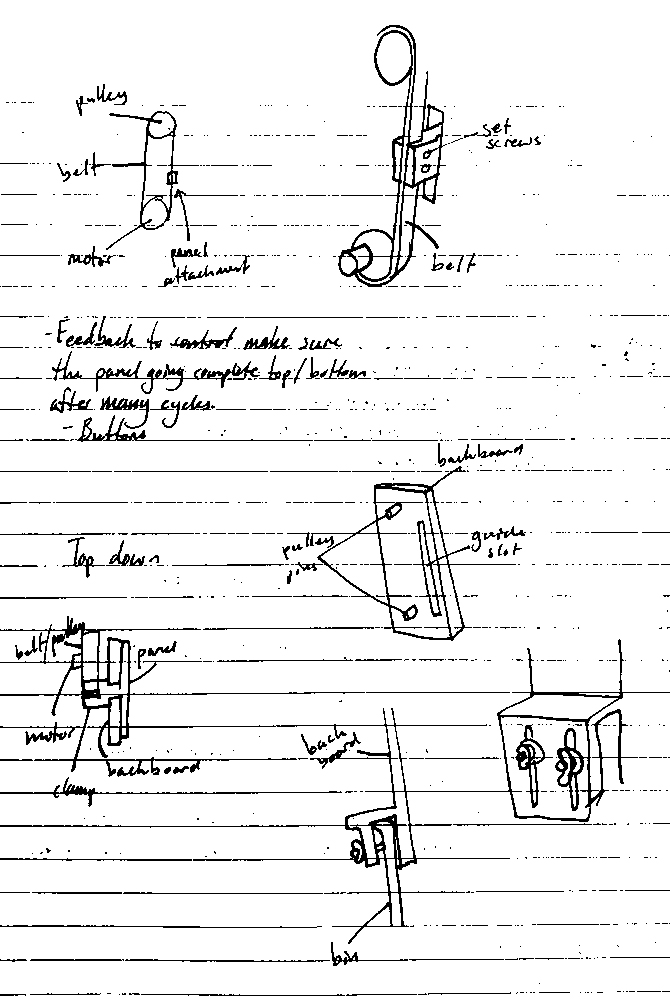 pulley
belt
motor
panel
attachment
set
screws
belt
-Feedback to control make sure
the panel going complete top/bottom
after many cycles.
- Buttons
backboard
pulley
pins
guide
slot
Top down
belt/pulley
panel
motor
backboard
clamp
back
board
bin